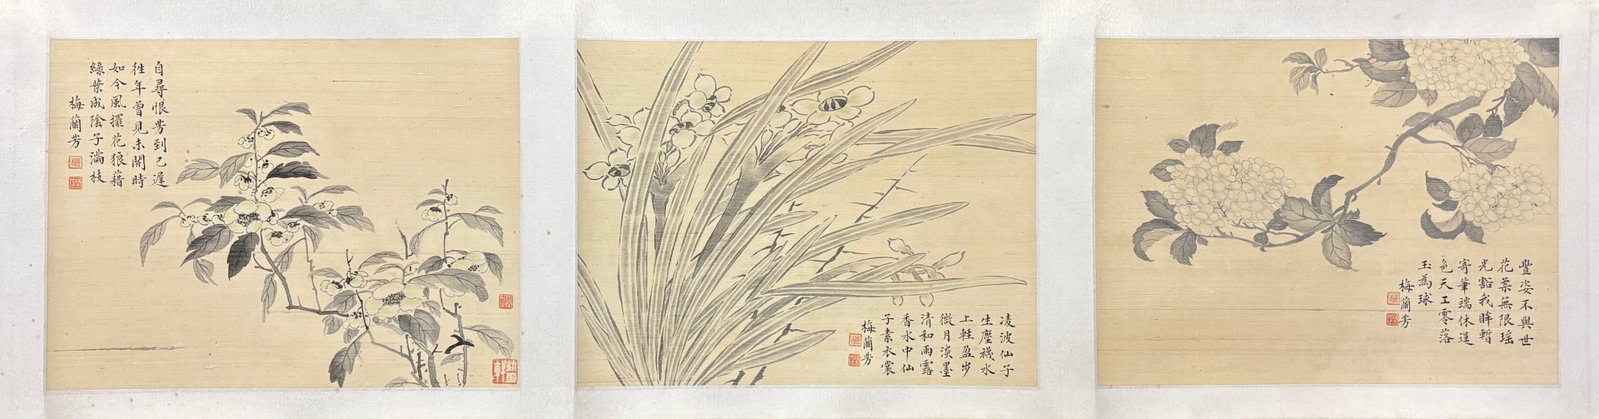 豐姿不與世
花叢無限瑶
光豁我眸暫
寄筆端休逞
色天工零落
玉為球
梅蘭芳
凌波仙子
生塵襪水
上輕盈步
微月淡墨
清和雨露
香水中仙
子素衣裳
梅蘭芳
自尋恨芳到已遲
徃年曾見未開時
如今風擺花狼藉
綠葉成陰子滿枝
梅蘭芳